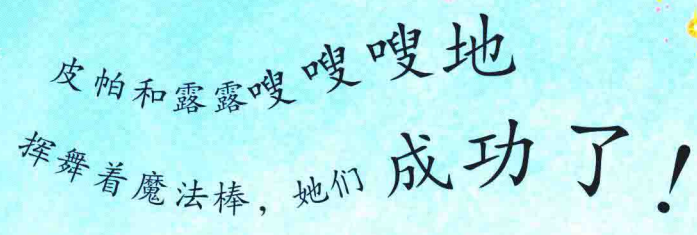 皮帕和露露嗖嗖嗖地
挥舞着魔法棒，她们成功了！